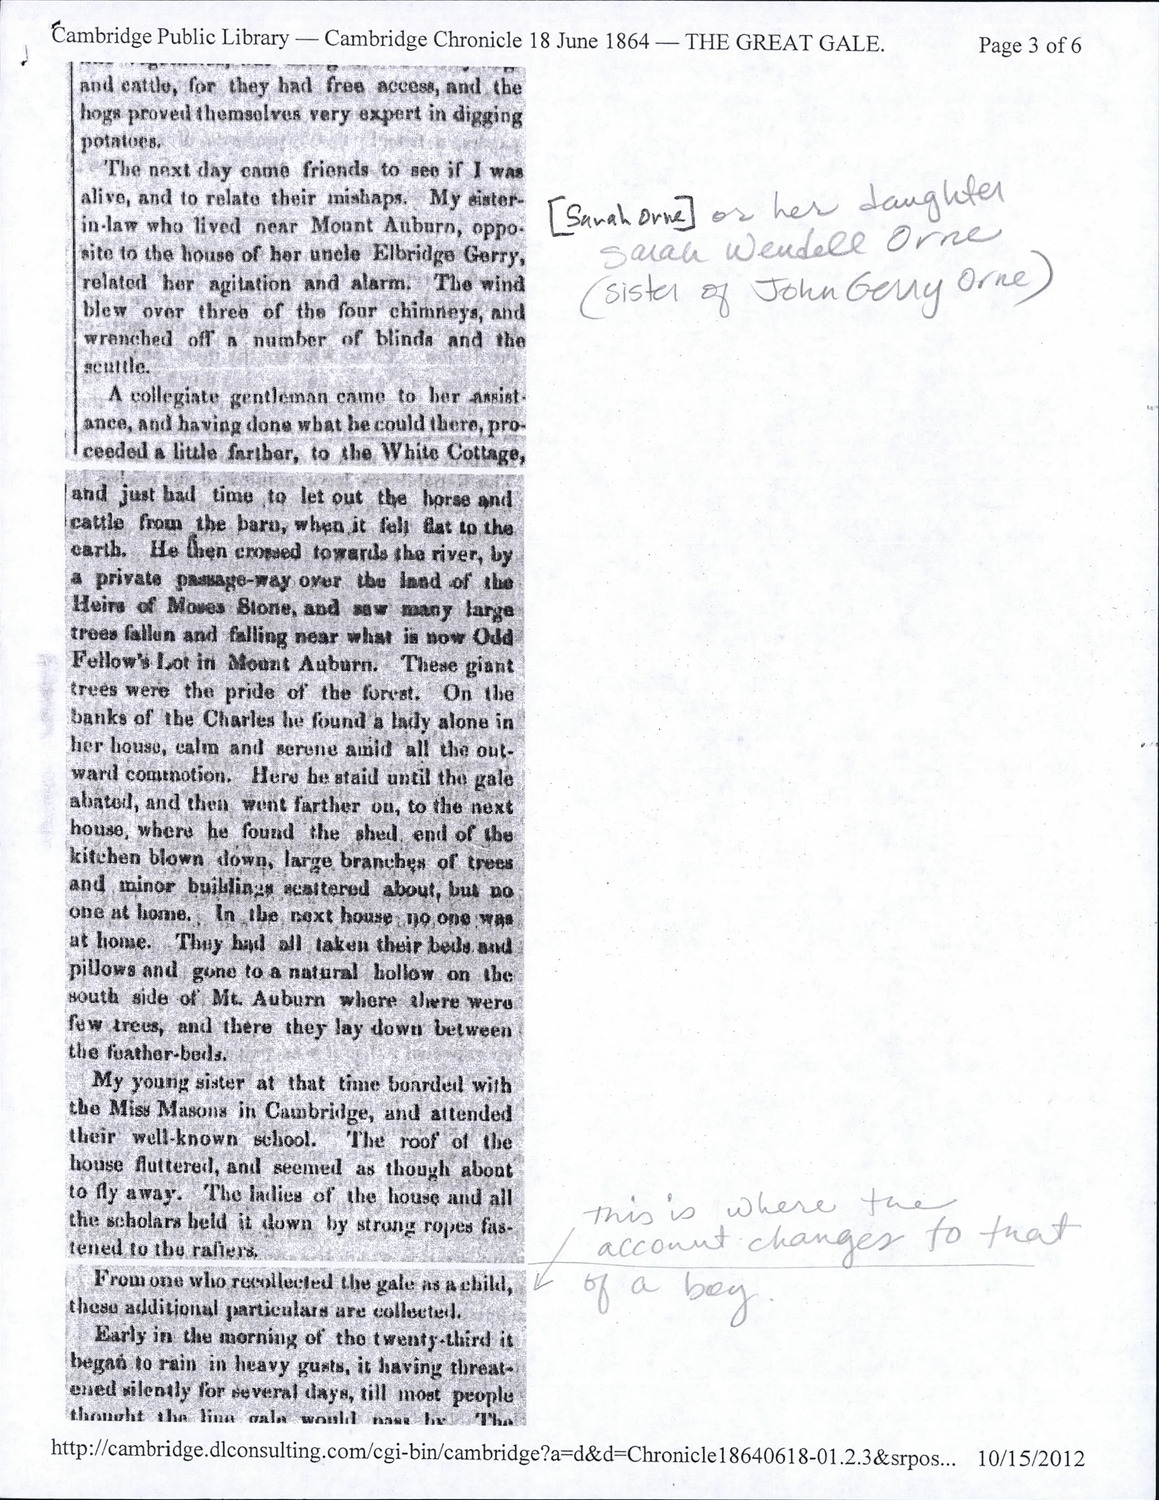 Cambridge Public Library — Cambridge Chronicle 18 June 1864 — THE GREAT GALE. Page 3 of 6
and cattle, for they had free access, and the
hogs proved themselves very expert in digging
potatoes.
The next day came friends to see if I was
alive, and to relate their mishaps. My sister-
in-law who lived near Mount Auburn, oppo-
site to the house of her uncle Elbridge Gerry,
related her agitation and alarm. The wind
blew over three of the four chimneys, and
wrenched off a number of blinds and the
scuttle.
A collegiate gentleman came to her assist-
ance, and having done what he could there, pro-
ceeded a little farther, to the White Cottage,
[Sarah Orne] or her daughter
Sarah Wendell Orne
(sister of John Gerry Orne)
and just had time to let out the horse and
cattle from the barn, when it fell flat to the
earth. He then crossed towards the river, by
a private passage-way over the land of the
Heirs of Moses Stone, and saw many large
trees fallen and falling near what is now Odd
Fellow's Lot in Mount Auburn. These giant
trees were the pride of the forest. On the
banks of the Charles he found a lady alone in
her house, calm and serene amid all the out-
ward commotion. Here he staid until the gale
abated, and then went farther on, to the next
house, where he found the shed end of the
kitchen blown down, large branches of trees
and minor buildings scattered about, but no
one at home. In the next house no one was
at home. They had all taken their beds and
pillows and gone to a natural hollow on the
south side of Mt. Auburn where there were
few trees, and there they lay down between
the feather-beds.
My young sister at that time boarded with
the Miss Masons in Cambridge, and attended
their well-known school. The roof of the
house fluttered, and seemed as though about
to fly away. The ladies of the house and all
the scholars held it down by strong ropes fas-
tened to the rafters.
From one who recollected the gale as a child,
these additional particulars are collected.
Early in the morning of the twenty-third it
began to rain in heavy gusts, it having threat-
ened silently for several days, till most people
thought the line gale would pass by. The
this is where the
account changes to that
of a boy.
http://cambridge.dlconsulting.com/cgi-bin/cambridge?a=d&d=Chronicle18640618-01.2.3&srpos... 10/15/2012